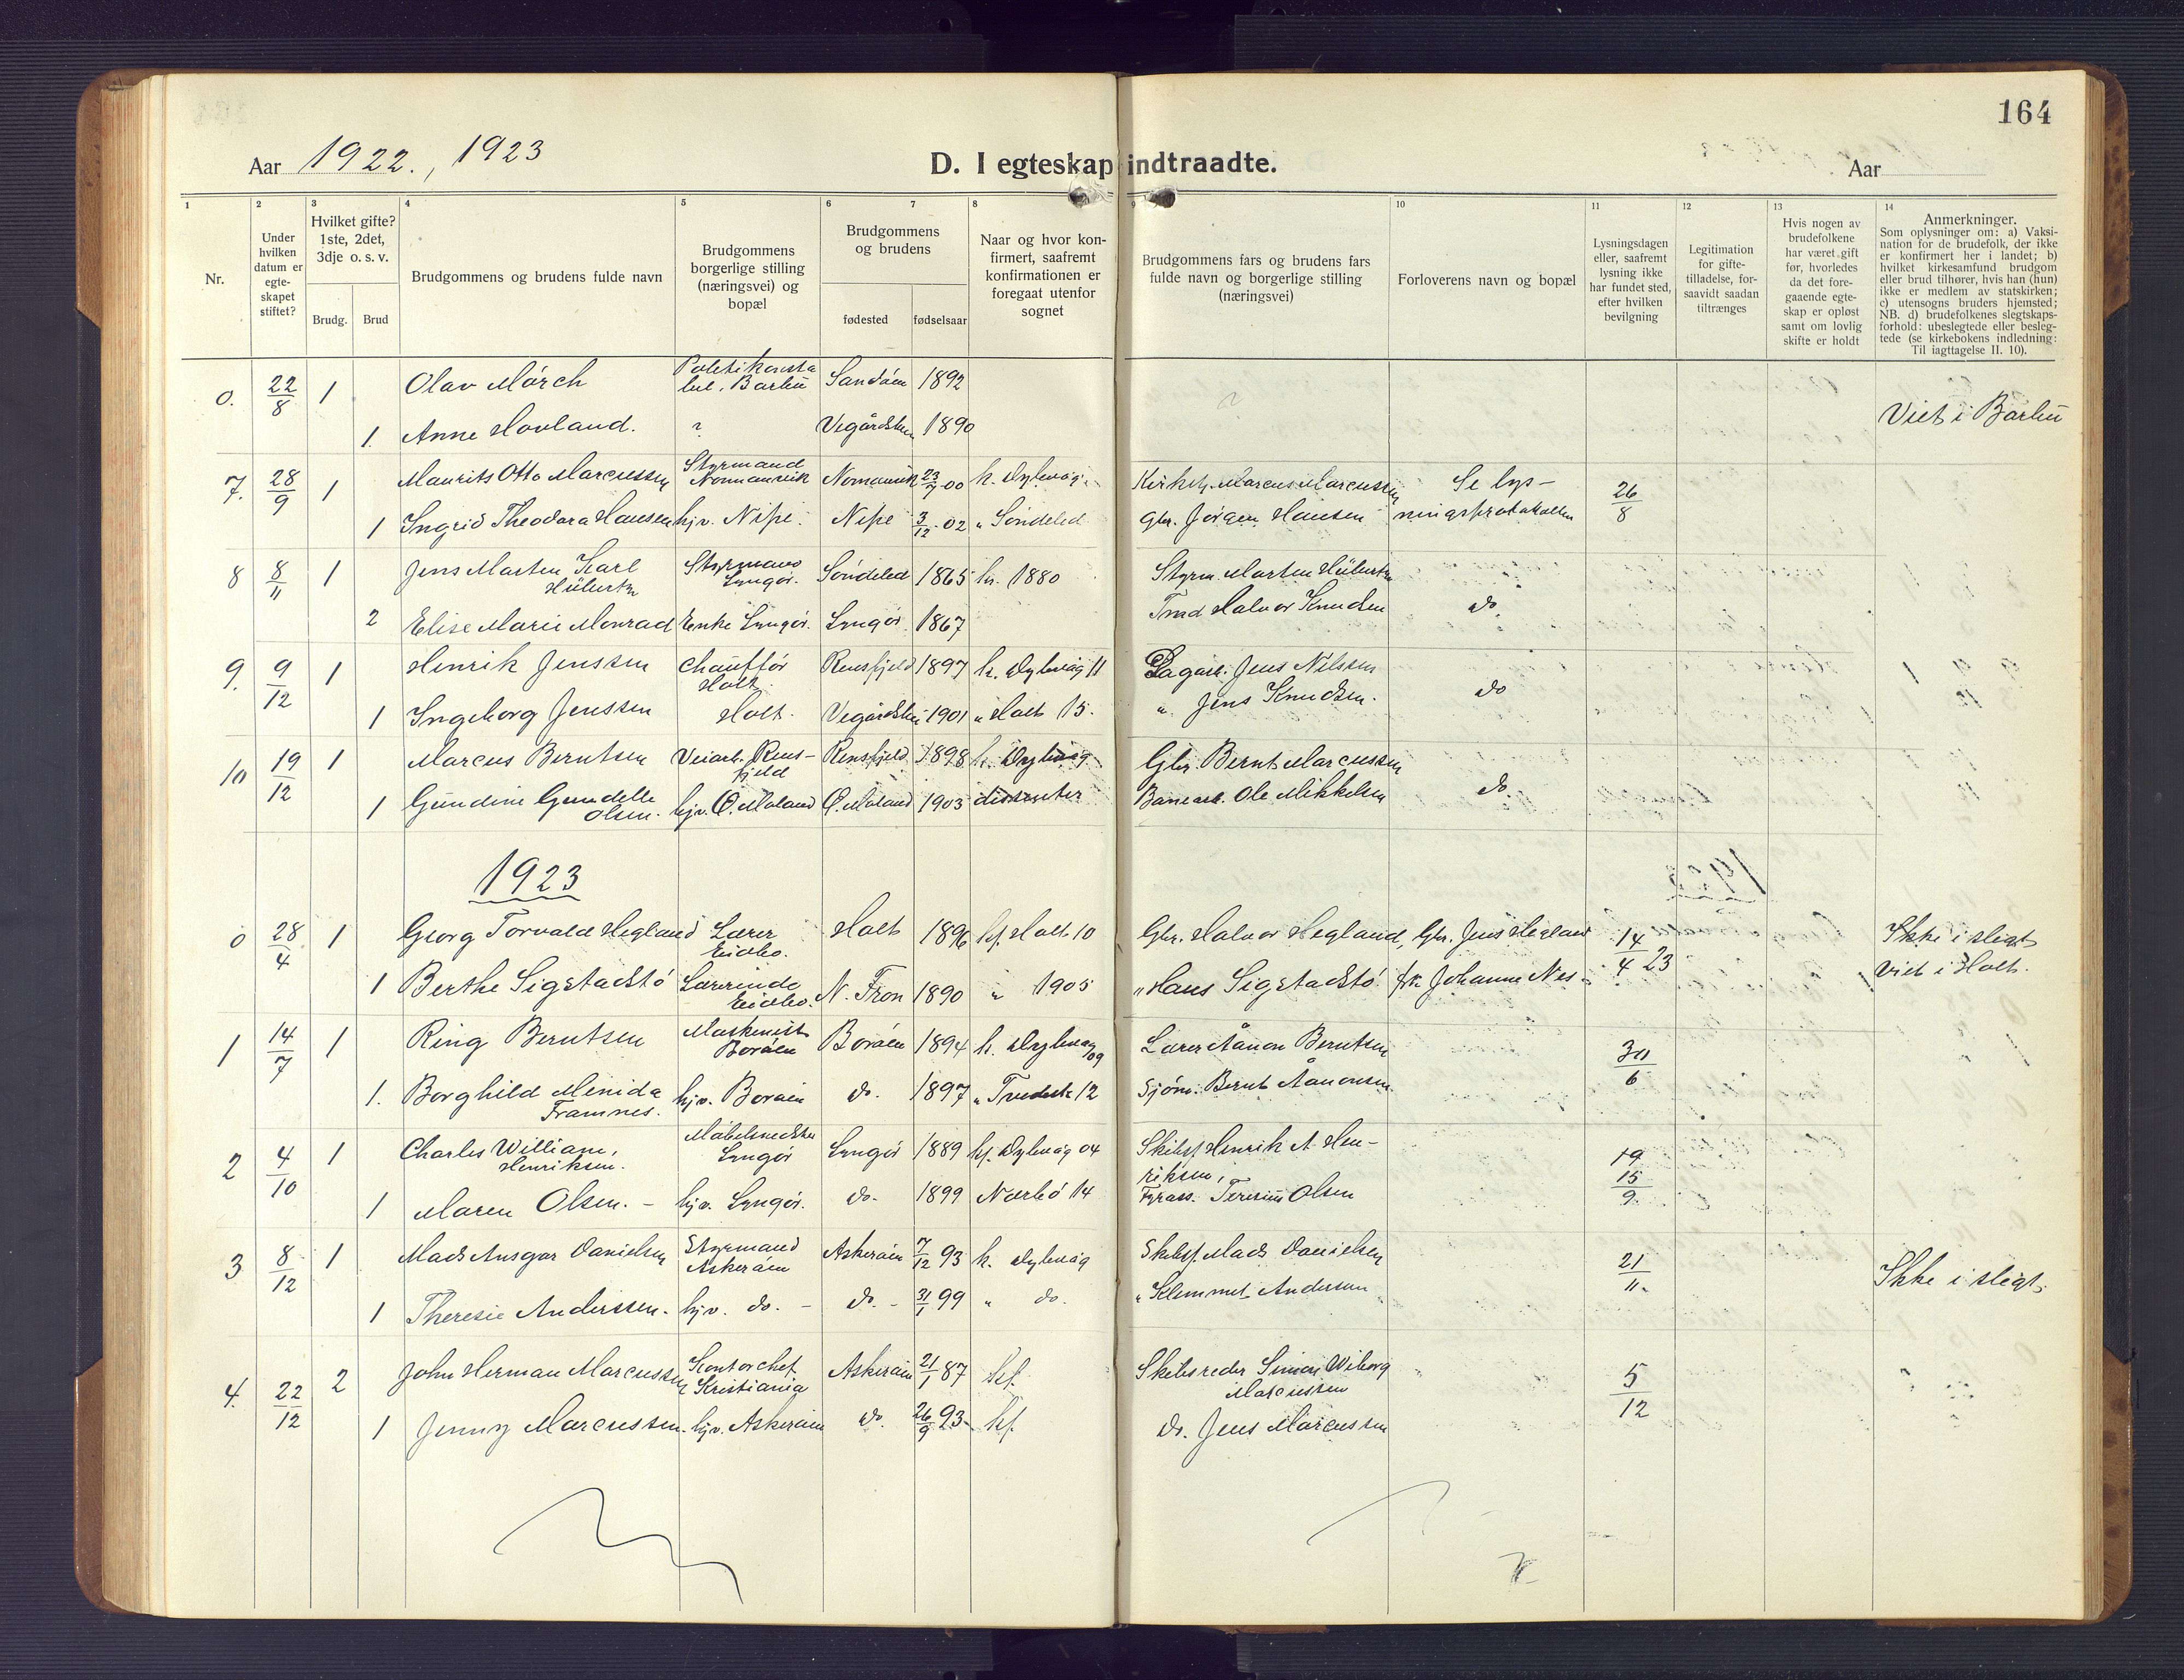 164
Aar 1922., 1923
D. I egteskap indtraadte.
Aar
1 2 3 4 5 6 7 8 9 10 11 12 13 14
Nr.
Under hvilken datum er egte-skapet stiftet?
Hvilket gifte? 1ste, 2det, 3dje o. s. v.
Brudg. Brud
Brudgommens og brudens fulde navn
Brudgommens borgerlige stilling (næringsvei) og bopæl
Brudgommens og brudens
fødested fødselsaar
Naar og hvor kon-firmert, saafremt konfirmationen er foregaat utenfor sognet
Brudgommens fars og brudens fars fulde navn og borgerlige stilling (næringsvei)
Forloverens navn og bopæl
Lysningsdagen eller, saafremt lysning ikke har fundet sted, efter hvilken bevilgning
Legitimation for gifte-tilladelse, for-saavidt saadan tiltrænges
Hvis nogen av brudefolkene har været gift før, hvorledes da det fore-gaaende egte-skap er opløst samt om lovlig skifte er holdt
Anmerkninger.
Som oplysninger om: a) Vaksi-nation for de brudefolk, der ikke er konfirmert her i landet; b) hvilket kirkesamfund brudgom eller brud tilhører, hvis han (hun) ikke er medlem av statskirken; c) utensogns bruders hjemsted; NB. d) brudefolkenes slegtskaps-forhold: ubeslegtede eller besleg-tede (se kirkebokens indledning: Til iagttagelse II. 10).
0. 22/8 1 Olav Mörch Politikonsta bel. Barbu Sandöen 1892
1. Anne Hovland. ? Vegårdshei 1890 Viet i Barbu
7. 28/9 1 Maurits Otto Marcussen Styrmand Normanvik Normanvik 23/7 00 k. Dybvåg Kirketj. Marcus Marcussen Se lys- 26/8
1 Ingrid Theodora Hansen hjv. Nipe. Nipe 3/12 02 " Söndeled Gbr. Jörgen Hansen ningsprotokollen
8 8/11 1 Jens Marten Karl Hübertz Styrmand Lyngör. Söndeled 1865 k. 1880 Styrm. Marten Hübertz
2 Elise Marie Monrad Enke Lyngör. Lyngör 1867 Tmd Halvor Knudsen do.
9. 9/12 1 Henrik Jenssen Chaufför Holt. Rensfjeld 1897 k. Dybvåg 11 Dagarb. Jens Nilssen
1 Ingeborg Jenssen Holt. Vegårdshei 1901 " Holt 15. " Jens Knudsen. do
10 19/12 1 Marcus Berntsen Veiarb. Rens-fjeld Rensfjeld 1898 k. Dybvåg Gbr. Bernt Marcussen
1 Gundine Gundelle Olsen. hjv. Ö. Moland Ö. Moland 1903 dissenter Banearb. Ole Mikkelsen do.
1923
0 28/4 1 Georg Torvald Hegland Lærer Eidbo. Holt 1896 kf. Holt 10 Gbr. Halvor Hegland, Gbr. Jens Hegland 14/4 23 Ikke i slegt
1 Berthe Sigstadstö Lærerinde Eidbo. N. Fron 1890 " 1905 " Hans Sigstadstö frk. Johanne Nes Viet i Holt.
1 14/7 1 Ring Berntsen Maskinist Boröen Boröen 1894 k. Dybvåg 09 Lærer Aanon Berntsen 30/6
1. Borghild Menida Framnes. hjv. Boröen do. 1897 " Tvedestr. 12 Sjöm. Bernt Aanonsen
2 4/10 1 Charles William, Henriksen. Möbelsnedker Lyngör Lyngör 1889 kf. Dybvåg 04 Skibsf. Henrik A. Hen-riksen, 19 15/9
1 Maren Olsen. - hjv. Lyngör. do. 1899 Nærbö 14 Fyrass. Olsen
3 8/12 1 Mads Ansgar Danielsen Styrmand Askeröen Askeröen 7/12 93 k. Dybvåg Skibsf. Mads Danielsen 21/11.
1 Theresie Anderssen. hjv. do. - do. - 31/1 99 " do. " Klemmet Andersen Ikke i slegt.
4. 22/12 2 John Herman Marcussen Kontorchef. Kristiania Askeröen 21/1 87 kf. Skibsreder Simon Wiborg Marcussen 5/12
1 Jenny Marcussen. hjv. Askeröen do. 26/9 93 kf. do. Jens Marcussen